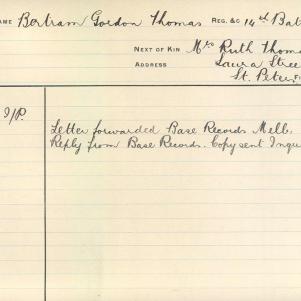 AME Bertram Gordon Thomas REG. &c 14th Bat
NEXT OF KIN Mrs Ruth Thoma
ADDRESS Laura Stree
St. Peter
I/P. Letter forwarded Base Records Melb.
Reply from Base Records. Copy sent Inqu